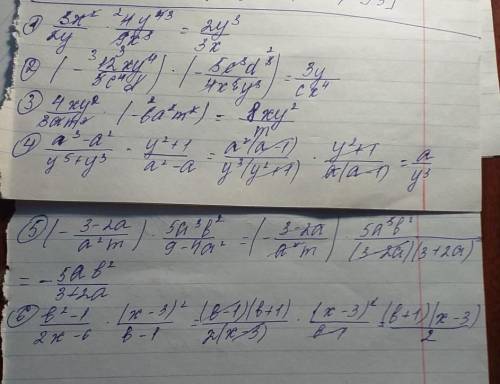 1) 3x²/2y · 4y⁴/9x³ = 2y³/3x
2) (-12xy⁴/5c⁴d) · (-5c³d²/4x⁵y³) = 3y/cx⁴
3) 4xy²/3am² · (-6a²m²) = 8xy²/m
4) a³-a²/y⁵+y³ · y²+1/a²-a = a²(a-1)/y³(y²+1) · y²+1/a(a-1) = a/y³
5) (-3-2a/a²m) · 5a³b²/9-4a² = (-3-2a/a²m) · 5a³b²/(3-2a)(3+2a) =
= -5ab²/3+2a
6) b²-1/2x-6 · (x-3)²/b-1 = (b-1)(b+1)/2(x-3) · (x-3)²/b-1 = (b+1)(x-3)/2